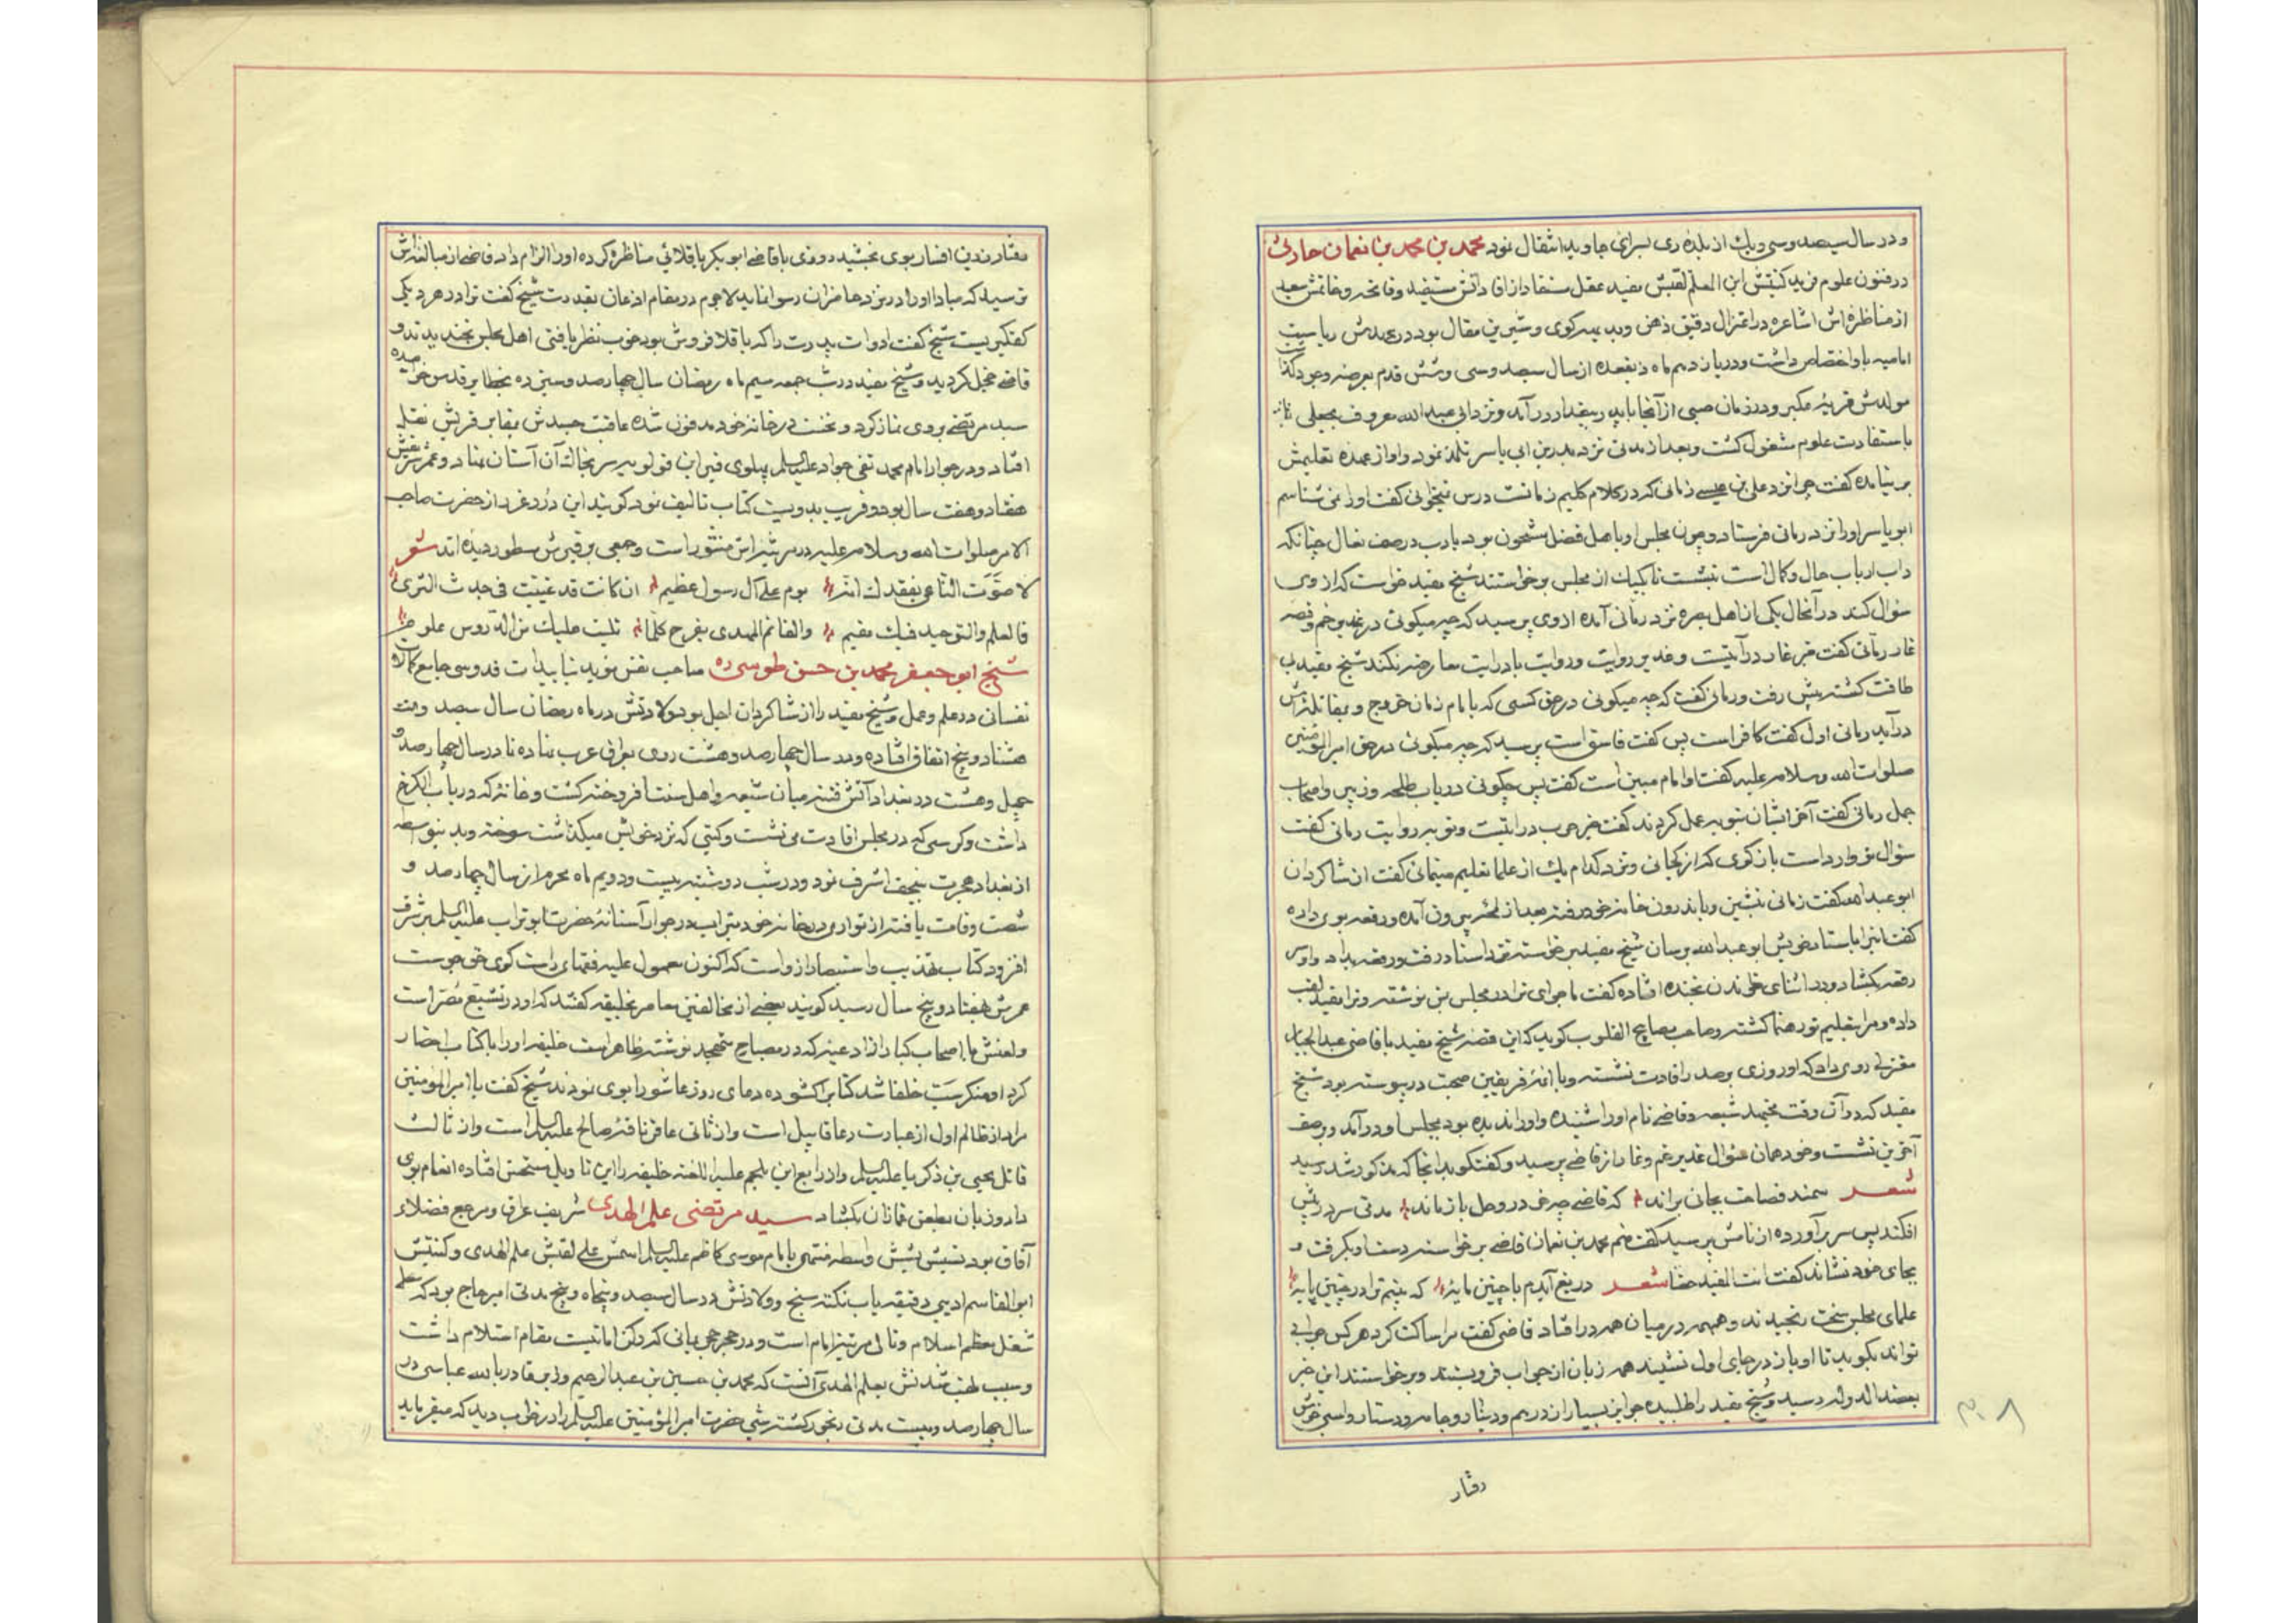 و در سال سیصد و سی و یک از بلده ری بسرای جاوید انتقال نمود محمد بن محمد بن نعمان حارثی
در فنون علوم فرید کنیتش ابن المعلم لقبش مفید عقل مستفاد از افاداتش مستفید و فاتحه و خاتمتش سعید
از مناظره اش اشاعره در اعتزال دقیق ذهن و بدیهه گوی و شیرین مقال بود در عهدش ریاست
امامیه باو اختصاص داشت و در یازدهم ماه ذیقعده از سال سیصد و سی و شش قدم بعرصه وجود گذاشت
مولدش قریه عکبر و در زمان صبی از آنجا با پدر ببغداد در آمد و نزد ابی عبدالله معروف بجعلی
باستفادت علوم مشغول گشت و بعد از مدتی نزد ابی یاسر تلمذ نمود و او از عهده تعلیمش
بر نیامده گفت چرا نزد علی بن عیسی رمانی که در کلام کلیم زمانست درس نیخوانی گفت او را نمی شناسم
ابو یاسر او را نزد رمانی فرستاد و چون مجلس او باهل فضل مشحون بود بادب در صف نعال چنانکه
داب ارباب حال و کمال است بنشست تا یکیک از مجلس برخواستند شیخ مفید خواست که از وی
سئوال کند در آنحال یکی از اهل بصره نزد رمانی آمده از وی پرسید که چه میگوئی در غدیر خم و قصه
غار رمانی گفت خبر غار درایتست و غدیر روایت و روایت با درایت معارضه نکند شیخ مفید بی
طاقت گشته پیش رفت و رمانی گفت که چه میگوئی در حق کسی که با امام زمان خروج و بمقاتله اش
درآید رمانی اول گفت کافر است پس گفت فاسق است پرسید که چه میگوئی در حق امیرالمؤمنین
صلوات الله و سلامه علیه گفت او امام مبین است گفت پس چگوئی در باب طلحه و زبیر و اصحاب
جمل رمانی گفت آخر ایشان توبه عمل کردند گفت خبر حرب درایتست و توبه روایت رمانی گفت
سئوال تو وارد است بازگوی که از کجائی و نزد کدام یک از علما تعلیم مینمائی گفت از شاگردان
ابو عبدالله گفت زمانی بنشین و باندرون خانه خود رفته بعد از لمحه بیرون آمده و رقعه بوی داده
گفت اینرا باستاد خویش ابو عبدالله برسان شیخ مفید برخواسته نزد استاد رفت و رقعه بداد و اوش
رقعه بگشاد و در اثنای خواندن بخنده افتاده گفت ماجرای ترا در مجلس بمن نوشته و ترا مفید لقب
داده و مرا بتعلیم تو رهنما گشته و صاحب مصابیح القلوب گوید که این قصه شیخ مفید با قاضی عبدالجبار
معتزلی روی داد که او روزی بر صدر افادت نشسته و با ائمه فریقین صحبت در پیوسته بود شیخ
مفید که در آن وقت مجتهد شیعه و قاضی نام او را شنیده و او را ندیده بود بمجلس او درآمد و در صف
آخرین نشست و خود همان سئوال غدیر خم و غار از قاضی پرسید و گفتگو بدانجا که مذکور شد رسید
شعر سمند فصاحت بجائی براند که قاضی چو خر در وحل باز ماند مدتی سر در پیش
افکند پس سر برآورده از نامش پرسید گفت منم محمد بن نعمان قاضی برخواسته دست او بگرفت و
بجای خود نشاند گفت انت المفید حقا شعر دریغ آیدم با چنین مایه که بینم ترا در چنین پایه
علمای مجلس سخت رنجیدند و همهمه در میان همه در افتاد قاضی گفت مرا ساکت کرد هر کس جوابی
تواند بگوید تا او باز در جای اول نشیند همه زبان از جواب فروبستند و برخواستند این خبر
بعضدالدوله رسید و شیخ مفید را طلبیده جوایز بسیار از درهم و دینار و جامه و دستار و اسبی خوش
رفتار
۳۰۸
رفتار زرین افسار بوی بخشید روزی با قاضی ابوبکر باقلانی مناظره کرده او را الزام داد قاضی از مبالغه اش
ترسید که مبادا او را در نزد حاضران رسوا نماید لاجرم در مقام اذعان بقدرت شیخ گفت ترا در هر دیک
کفگیریست شیخ گفت ادوات پدرت را که باقلا فروش بود خوب بنظر یافتی اهل مجلس بخندیدند و
قاضی خجل گردید و شیخ مفید در شب جمعه سیم ماه رمضان سال چهارصد و سیزده بخطایر قدس خرامیده
سید مرتضی بروی نماز کرد و نخست در خانه خود مدفون شده عاقبت جسدش بمقابر قریش نقل
افتاد و در جوار امام محمد تقی جواد علیه السلام پهلوی قبر ابن قولویه سر بخاک آن آستان نهاد و عمر شریفش
هفتاد و هفت سال بود و قریب بدویست کتاب تالیف نمود گویند این درر غرر از حضرت صاحب
الامر صلوات الله و سلامه علیه در مرثیه اش منثور است و جمعی بر قبرش مسطور دیده اند شعر
لا صوت الناعی بفقدك انه یوم علی آل رسول عظیم ان کانت قد غیبت فی جدث الثری
فالعلم والتوحید فیك مقیم والقائم المهدی یفرح کلما تلیت علیك من الدروس علوم
شیخ ابو جعفر محمد بن حسن طوسی ره صاحب نفس مؤید بتاییدات قدوسی جامع کمالات
نفسانی در علم و عمل و شیخ مفید را از شاگردان اجل بود ولادتش در ماه رمضان سال سیصد و
هشتاد و پنج اتفاق افتاده و در سال چهارصد و هشت روی بعراق عرب نهاده تا در سال چهارصد و
چهل و هشت در بغداد آتش فتنه میان شیعه و اهل سنت افروخته گشت و خانه که در باب الکرخ
داشت و کرسی که در مجلس افادت می نشست و کتبی که نزد خویش میگذاشت سوخته و بدینواسطه
از بغداد هجرت بنجف اشرف نمود و در شب دوشنبه بیست و دویم ماه محرم از سال چهارصد و
شصت وفات یافته از تواری در خانه خود بتراب در جوار آستانه حضرت ابوتراب علیه السلام بر شرف
افزود کتاب تهذیب و استبصار از واست که اکنون معمول علیه فقهای راست گوی حق جوست
عمرش بهفتاد و پنج سال رسید گویند بعضی از مخالفین معاصر بخلیفه گفتند که او در تشیع مصر است
و لعنش با اصحاب کبار از ادعیه که در مصباح متهجد نوشته ظاهر است خلیفه او را با کتاب احضار
کرد او منکر سب خلفا شد کتاب را گشوده دعای روز عاشورا بوی نمودند شیخ گفت یا امیرالمؤمنین
مراد از ظالم اول از عبارت دعا قابیل است و از ثانی عاقر ناقه صالح علیه السلام است و از ثالث
قاتل یحیی بن ذکریا علیه السلام و از رابع ابن ملجم علیه اللعنه خلیفه را این تاویل مستحسن افتاده انعام بوی
داد و زبان بطعن غمازان بگشاد سید مرتضی علم الهدی شریف عراق و مرجع فضلاء
آفاق بود نسبش بشش واسطه منتهی بامام موسی کاظم علیه السلام اسمش علی لقبش علم الهدی و کنیتش
ابوالقاسم ادیبی دقیقه یاب نکته سنج و ولادتش در سال سیصد و پنجاه و پنج مدتی امیر حاج بود که
شغل معظم اسلام و تالی مرتبه امام است و در حجر حرمانی که رکن امانیست مقام استلام داشت
و سبب لقب شدنش بعلم الهدی آنست که محمد بن حسین بن عبدالرحیم وزیر قادر بالله عباسی در
سال چهارصد و بیست مدتی رنجور گشته شبی حضرت امیرالمؤمنین علیه السلام را در خواب دید که میفرماید